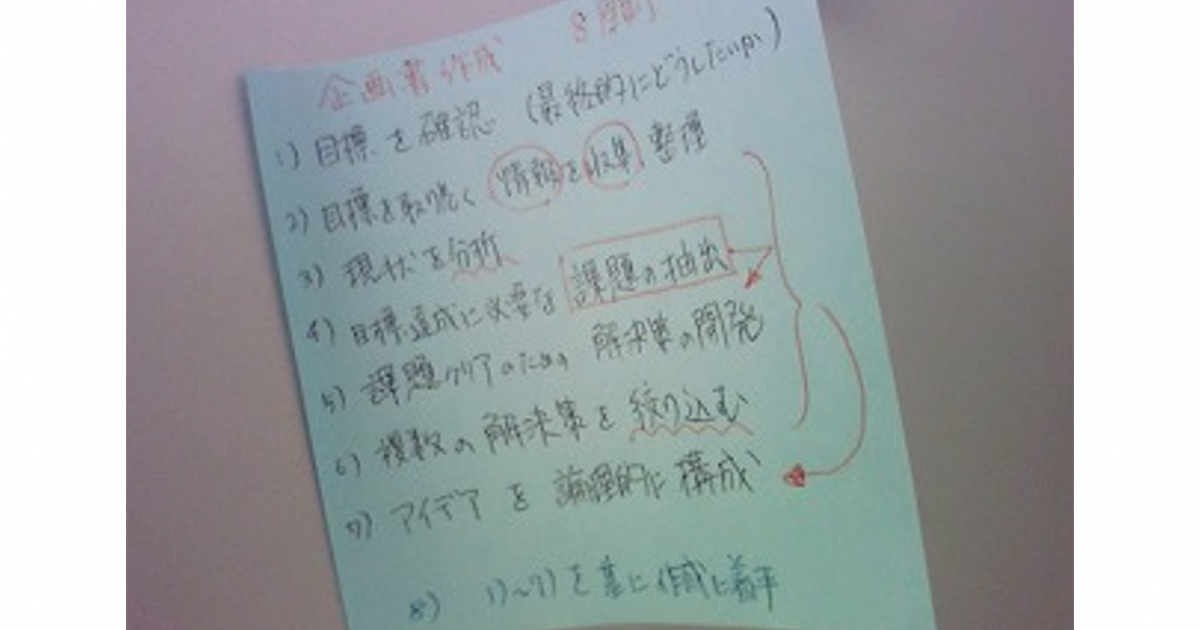 企画書作成 8原則
1) 目標を確認 (最終的にどうしたいか)
2) 目標を取り巻く情報を収集、整理
3) 現状を分析
4) 目標達成に必要な課題の抽出
5) 課題クリアのための解決策の開発
6) 複数の解決策を絞り込む
7) アイデアを論理的に構成
8) 1)〜7)を基に作成に着手